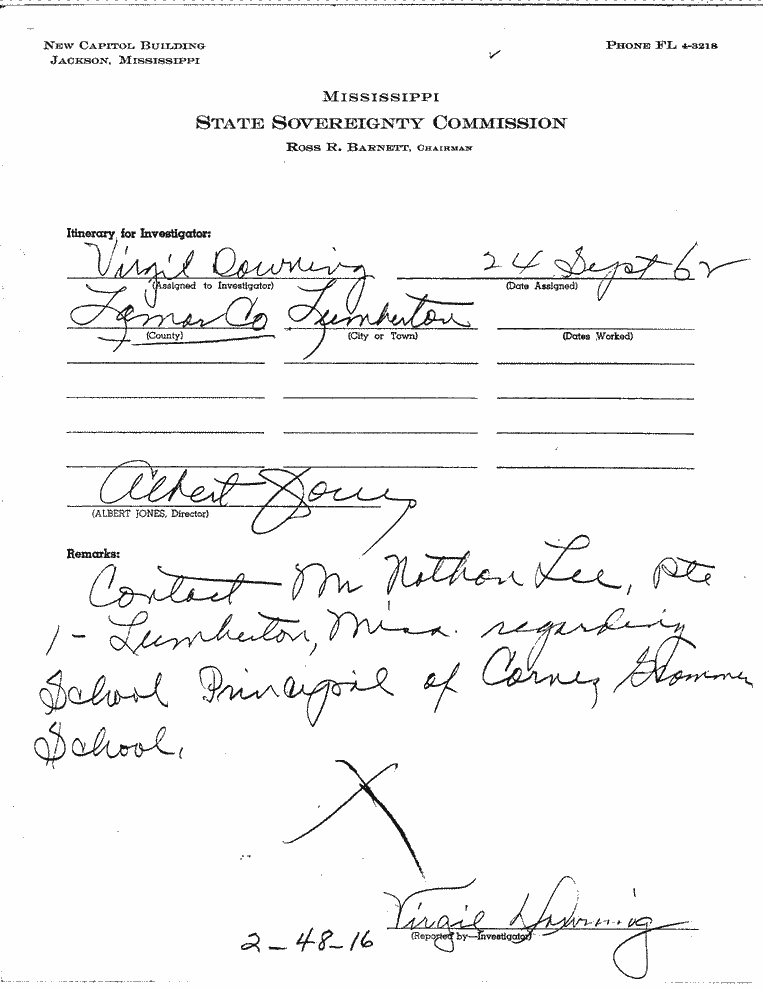 NEW CAPITOL BUILDING
JACKSON, MISSISSIPPI
PHONE FL 4-3218
MISSISSIPPI
STATE SOVEREIGNTY COMMISSION
ROSS R. BARNETT, CHAIRMAN
Itinerary for Investigator:
Virgil Downing 24 Sept 62
(Assigned to Investigator) (Date Assigned)
Lamar Co Lumberton
(County) (City or Town) (Dates Worked)
Albert Jones
(ALBERT JONES, Director)
Remarks:
Contact Mr Nathan Lee, Rte
1 - Lumberton, Miss. regarding
School Principal of
School.
Virgil Downing
(Reported by—Investigator)
2-48-16